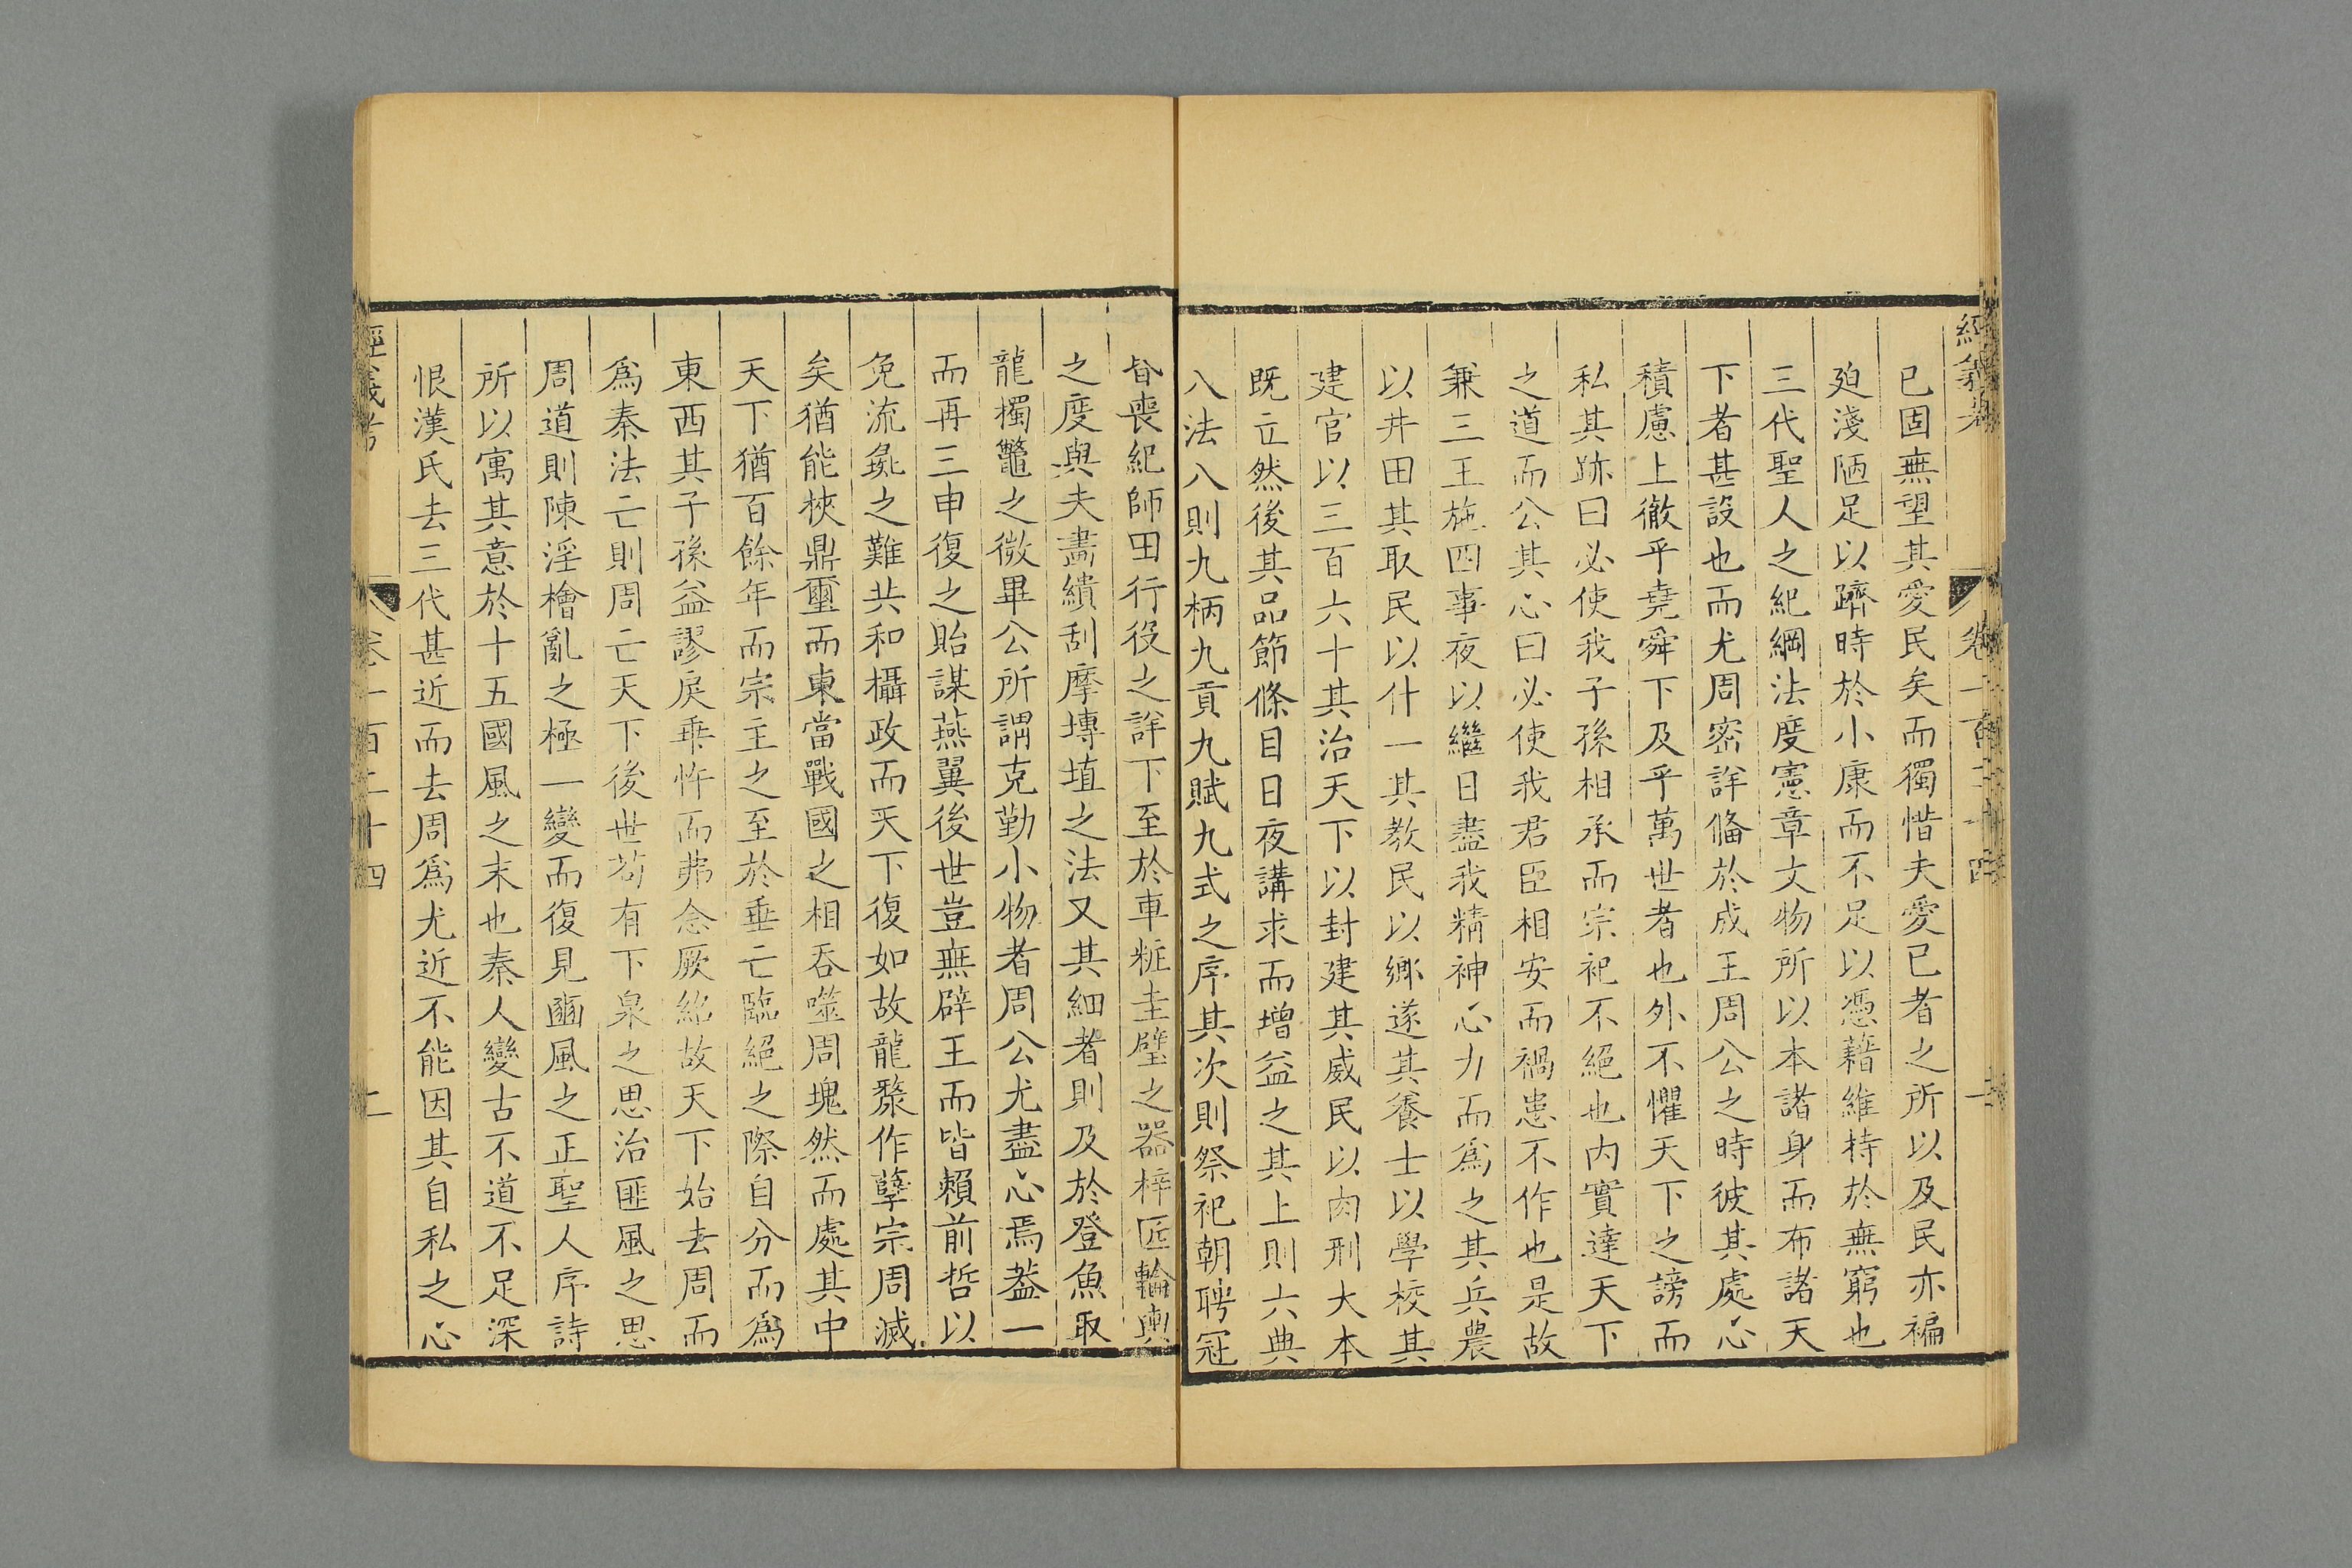 經義考 卷一百二十四 一
已固無望其愛民矣而獨惜夫愛已者之所以及民亦褊
廹淺陋足以躋時於小康而不足以憑藉維持於無窮也
三代聖人之紀綱法度憲章文物所以本諸身而布諸天
下者甚設也而尤周密詳備於成王周公之時彼其處心
積慮上徹乎堯舜下及乎萬世者也外不懼天下之謗而
私其跡曰必使我子孫相承而宗祀不絕也内實達天下
之道而公其心曰必使我君臣相安而禍患不作也是故
兼三王施四事夜以繼日盡我精神心力而爲之其兵農
以井田其取民以什一其教民以鄉遂其養士以學校其
建官以三百六十其治天下以封建其威民以肉刑大本
既立然後其品節條目日夜講求而增益之其上則六典
八法八則九柄九貢九賦九式之序其次則祭祀朝聘冠
昏喪紀師田行役之詳下至於車粧圭璧之器梓匠輪輿
之度與夫畵繢刮摩塼埴之法又其細者則及於登魚取
龍擉鼈之微畢公所謂克勤小物者周公尤盡心焉葢一
而再三申復之貽謀燕翼後世豈無辟王而皆賴前哲以
免流彘之難共和攝政而天下復如故龍漦作孽宗周滅
矣猶能挾鼎璽而東當戰國之相吞噬周塊然而處其中
天下猶百餘年而宗主之至於垂亡臨絕之際自分而爲
東西其子孫益謬戾乖忤而弗念厥紹故天下始去周而
爲秦法亡則周亡天下後世苟有下泉之思治匪風之思
周道則陳淫檜亂之極一變而復見豳風之正聖人序詩
所以寓其意於十五國風之末也秦人變古不道不足深
恨漢氏去三代甚近而去周爲尤近不能因其自私之心
經義考 卷一百二十四 二